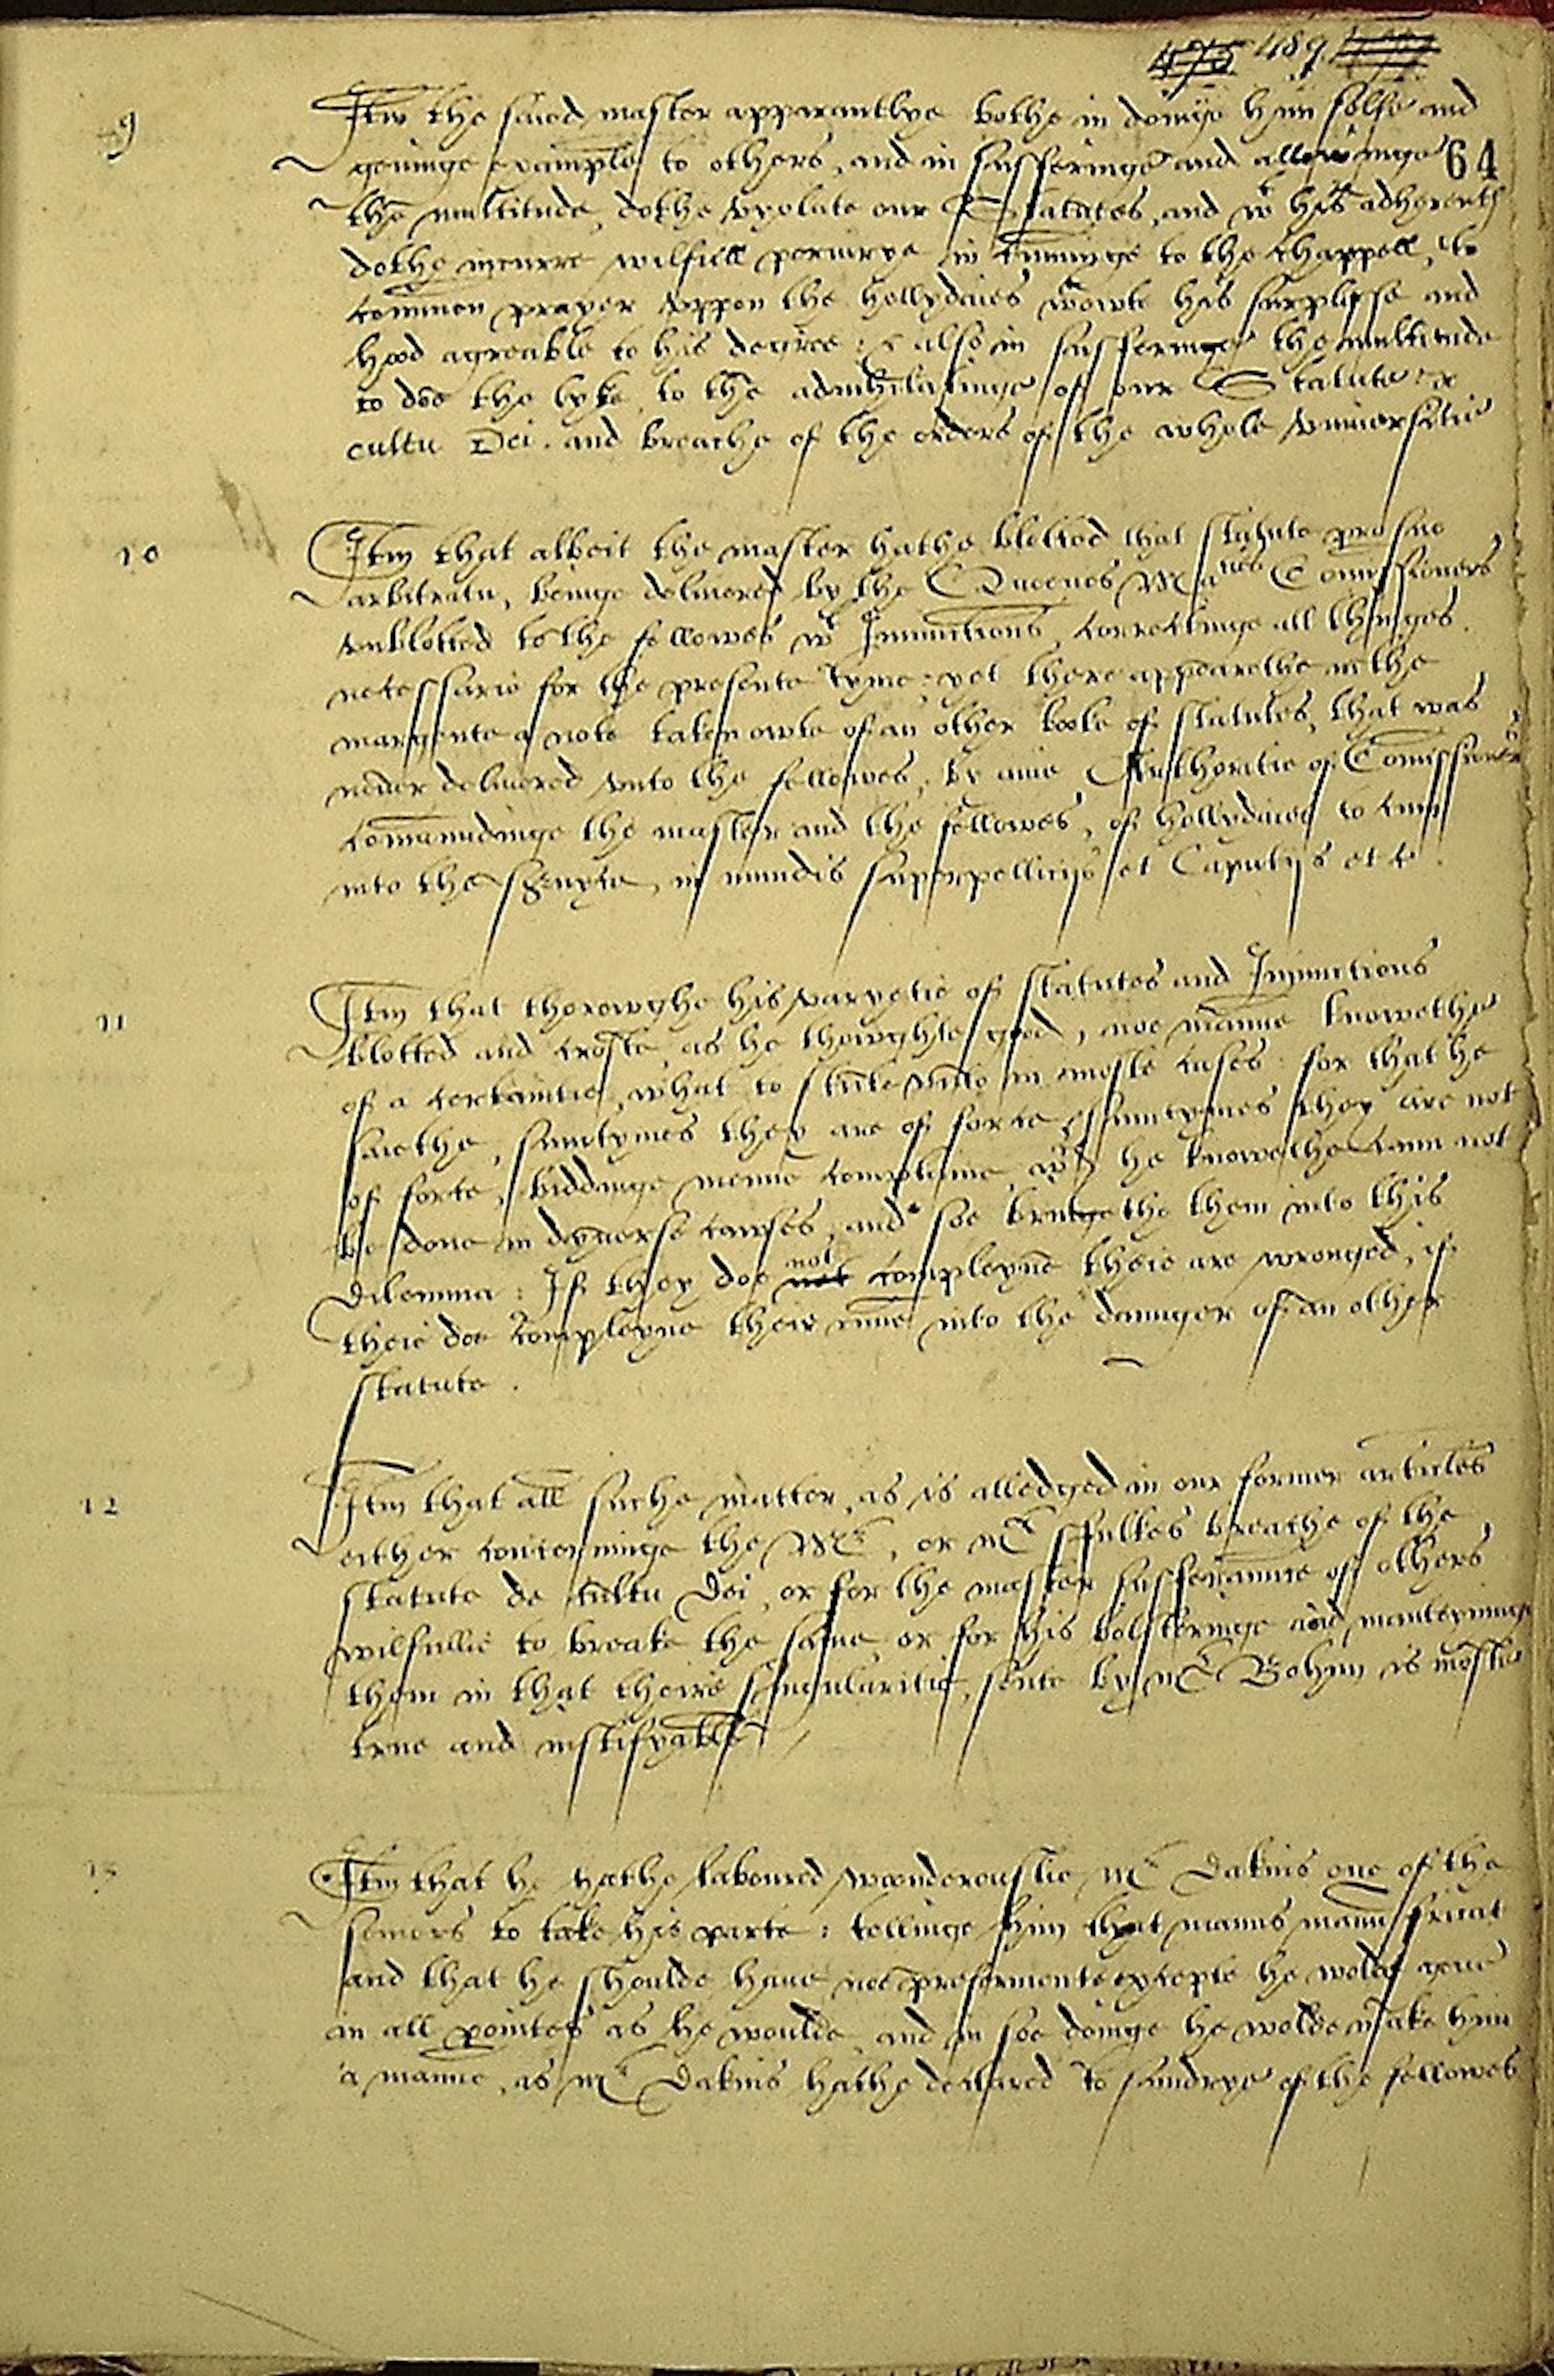 475 489
9 Itm the saied master apparantlye bothe in doinge him selfe and
geuinge example to others, and in sufferinge and allowinge 64
the multitude, dothe vyolate our Statutes, and wt his adherents
dothe incurre wilfull periurye in cominge to the chappell, to
common prayer vppon the hollydaies wtowte his surplesse and
hood agreable to his degree: & also in sufferinge the multitude
to doe the lyke, to the adnihilatinge of our Statute
cultu Dei. and breache of the orders of the whole vniuersitie
10 Itm that albeit the master hathe blotted that statute pro suo
arbitratu, beinge deliuered by the Queenes Maties Comissioners
vnblotted to the fellowes wt Iniunctions correctinge all thinges
necessarie for the presente tyme: yet there appearethe in the
margente a note taken owte of an other booke of statutes, that was
neuer deliuered vnto the fellowes, by anie Authoritie of Comissioners
comaundinge the master and the fellowes, of hollydaies to
into the in mundis superpellicijs et Caputijs et c.
11 Itm that thorowghe his varyetie of statutes and Iniunctions
blotted and croste as he thowghte good, noe manne knowethe
of a certaintie, what to vnto in moste cases: for that he
saiethe, sumtymes they are of force & sumtymes they are not
of force, biddinge menne complaine, wch he knowethe cann not
be done in dyuerse cawses, and soe bringethe them into this
Dilemma: If they doe not not compleyne theie are wronged, if
theie doe compleyne theie runne into the daunger of an other
statute.
12 Itm that all suche matter, as is alledged in our former articles
either concerninge the Mr, or Mr ffulkes breache of the
statute de cultu Dei, or for the master sufferaunce of others
wilfullie to breake the same, or for his bolsteringe and manteyninge
them in that theire singularitie, sente by Mr Bohun is moste
true and iustifyable
13 Itm that he hathe laboured wonderouslie Mr Dakins one of the
seniors to take his parte: tellinge him that manus manu fricat
and that he shoulde haue noe preferment excepte he wolde geue
in all pointes as he woulde, and in soe doinge he wolde make him
a manne, as Mr Dakins hathe declared to sundrye of the fellowes